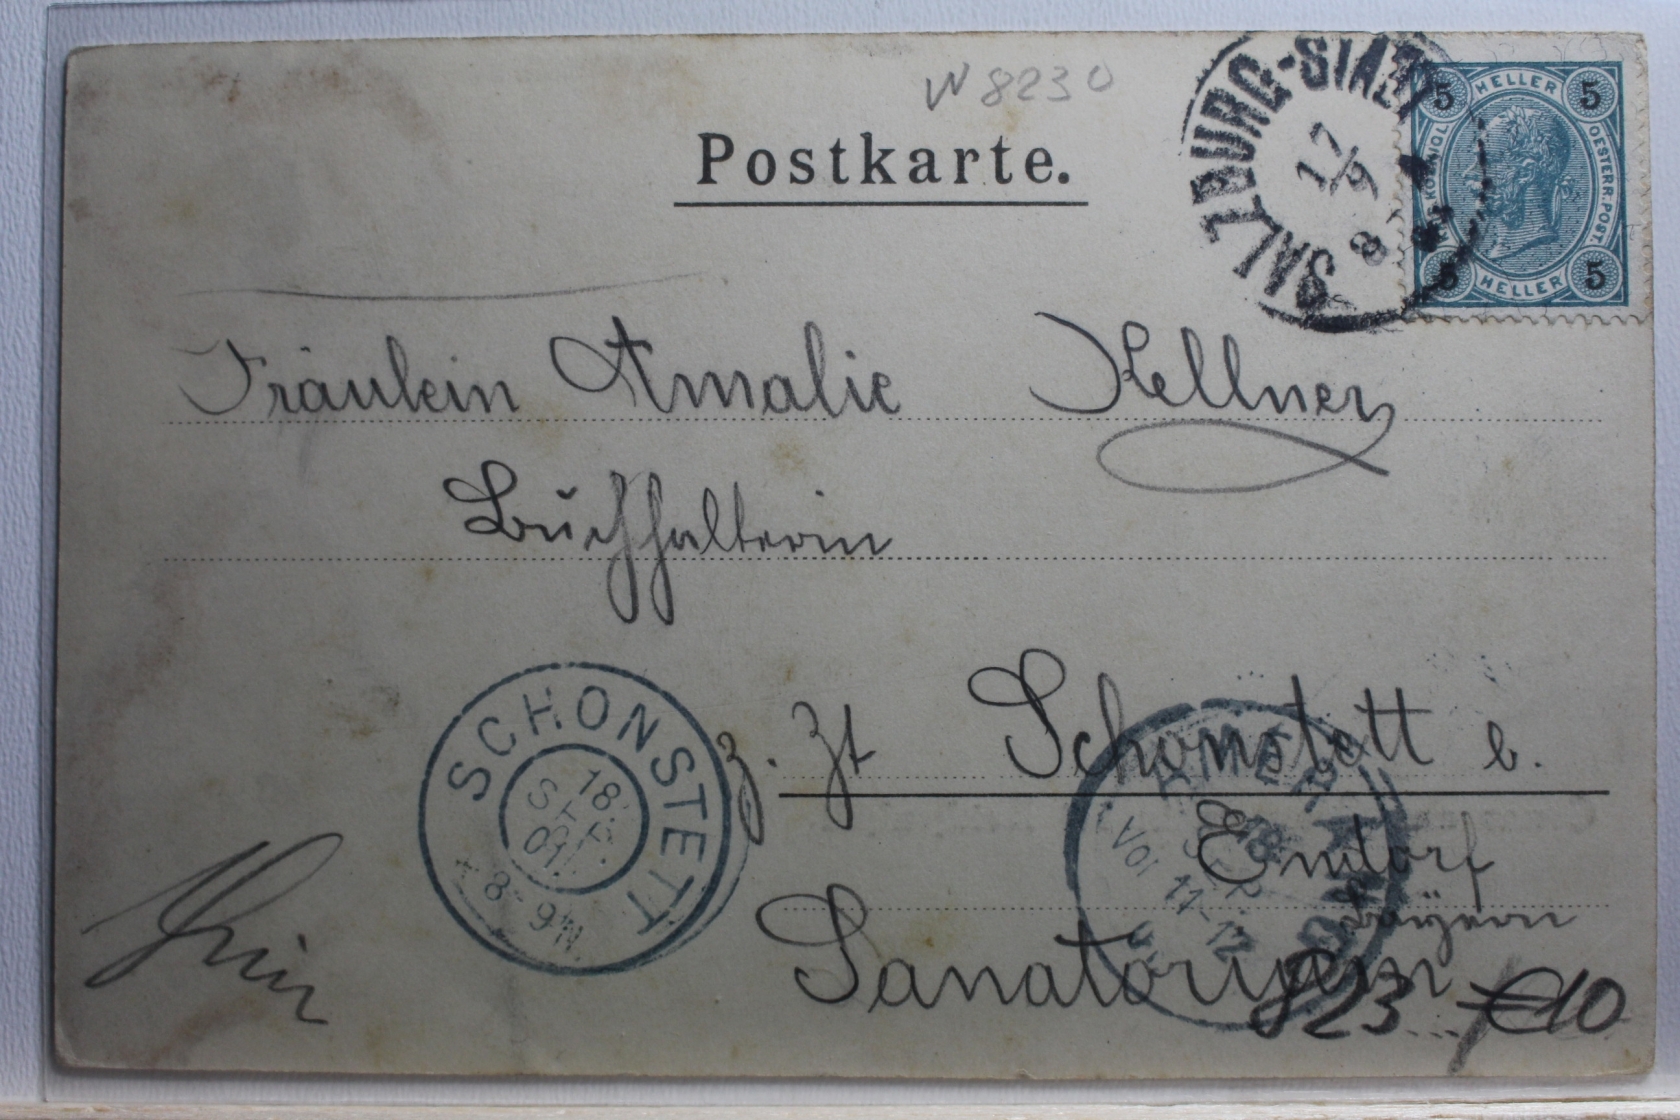 W 8230
Postkarte.
SALZBURG-STADT
17/9
8
5 HELLER 5
OESTERR. POST.
5 HELLER 5
Fräulein Amalie Kellner
Buchhalterin
z. Zt Schonstett b.
Emdorf
Bayern
Sanatorium
SCHONSTETT
18.
SEP.
01.
8-9 N.
Vor 11-12
823 €10